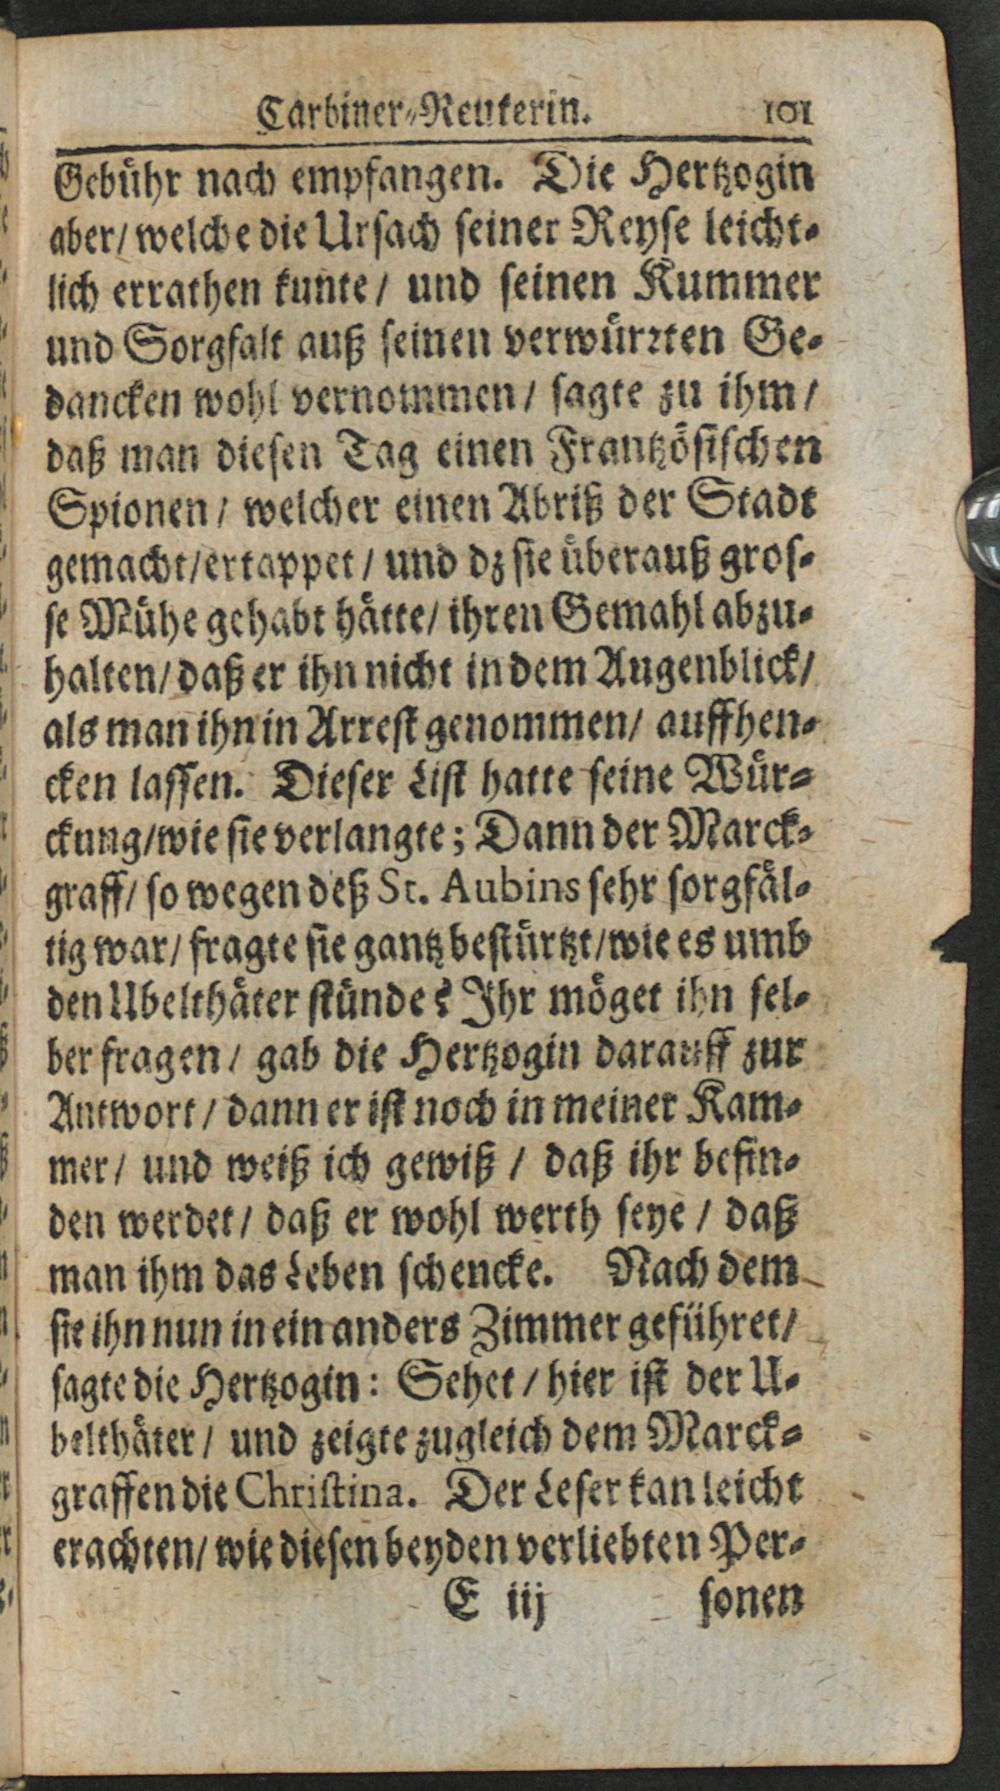 Carbiner-Reuterin. 101
Gebühr nach empfangen. Die Hertzogin
aber/ welche die Ursach seiner Reyse leicht-
lich errathen kunte/ und seinen Kummer
und Sorgfalt auß seinen verwürꝛten Ge-
dancken wohl vernommen/ sagte zu ihm/
daß man diesen Tag einen Frantzösischen
Spionen/ welcher einen Abriß der Stadt
gemacht/ ertappet/ und dz sie überauß gros-
se Mühe gehabt hätte/ ihren Gemahl abzu-
halten/ daß er ihn nicht in dem Augenblick/
als man ihn in Arrest genommen/ auffhen-
cken lassen. Dieser List hatte seine Wür-
ckung/ wie sie verlangte; Dann der Marck-
graff/ so wegen deß St. Aubins sehr sorgfäl-
tig war/ fragte sie gantz bestürtzt/ wie es umb
den Ubelthäter stünde? Ihr möget ihn sel-
ber fragen/ gab die Hertzogin darauff zur
Antwort/ dann er ist noch in meiner Kam-
mer/ und weiß ich gewiß/ daß ihr befin-
den werdet/ daß er wohl werth seye/ daß
man ihm das Leben schencke. Nach dem
sie ihn nun in ein anders Zimmer geführet/
sagte die Hertzogin: Sehet/ hier ist der U-
belthäter/ und zeigte zugleich dem Marck-
graffen die Christina. Der Leser kan leicht
erachten/ wie diesen beyden verliebten Per-
E iij sonen